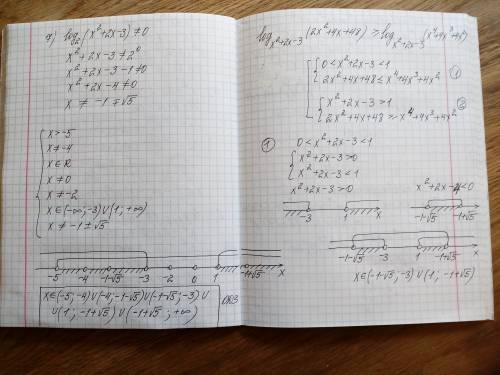 7) log₂(x²+2x-3) ≠ 0
x²+2x-3 ≠ 2⁰
x²+2x-3-1 ≠ 0
x²+2x-4 ≠ 0
x ≠ -1 ∓ √5
x > -5
x ≠ -4
x ∈ R
x ≠ 0
x ≠ -2
x ∈ (-∞; -3) ∪ (1; +∞)
x ≠ -1 ± √5
-5 -4 -1-√5 -3 -2 0 1 -1+√5 x
x ∈ (-5; -4) ∪ (-4; -1-√5) ∪ (-1-√5; -3) ∪
∪ (1; -1+√5) ∪ (-1+√5; +∞) ОДЗ
log x²+2x-3 (2x²+4x+48) ≥ log x²+2x-3 (x⁴+4x³+4x²)
0 < x²+2x-3 < 1
2x²+4x+48 ≤ x⁴+4x³+4x² ①
x²+2x-3 > 1
2x²+4x+48 ≥ x⁴+4x³+4x² ②
① 0 < x²+2x-3 < 1
x²+2x-3 > 0
x²+2x-3 < 1
x²+2x-3 > 0 x²+2x-4 < 0
-3 1 x -1-√5 -1+√5 x
-1-√5 -3 1 -1+√5 x
x ∈ (-1-√5; -3) ∪ (1; -1+√5)